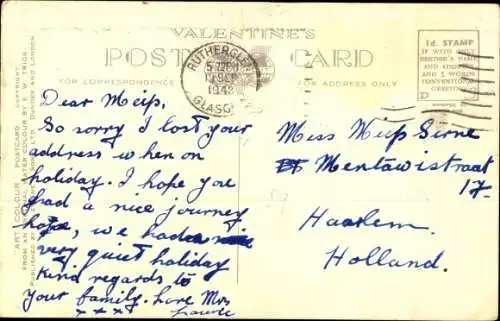 VALENTINE'S
POST CARD
FOR CORRESPONDENCE
FOR ADDRESS ONLY
1d. STAMP
IF WITH ONLY
SENDER'S NAME
AND
AND 5 WORDS
CONVENTIONAL
GREETING
RUTHERGLEN
SEP
GLASGOW
"ART COLOUR" POSTCARD
FROM AN ORIGINAL WATER COLOUR BY E. W. TRICK
PUBLISHED BY LTD. DUNDEE AND LONDON
Dear Meip.
So sorry I lost your
address when on
holiday. I hope you
had a nice journey
we had a
very quiet holiday
Kind regards to
your family. Love Mrs
x x x Lawrie
Miss Miep Serne
Mentawistraat
17.
Haarlem.
Holland.